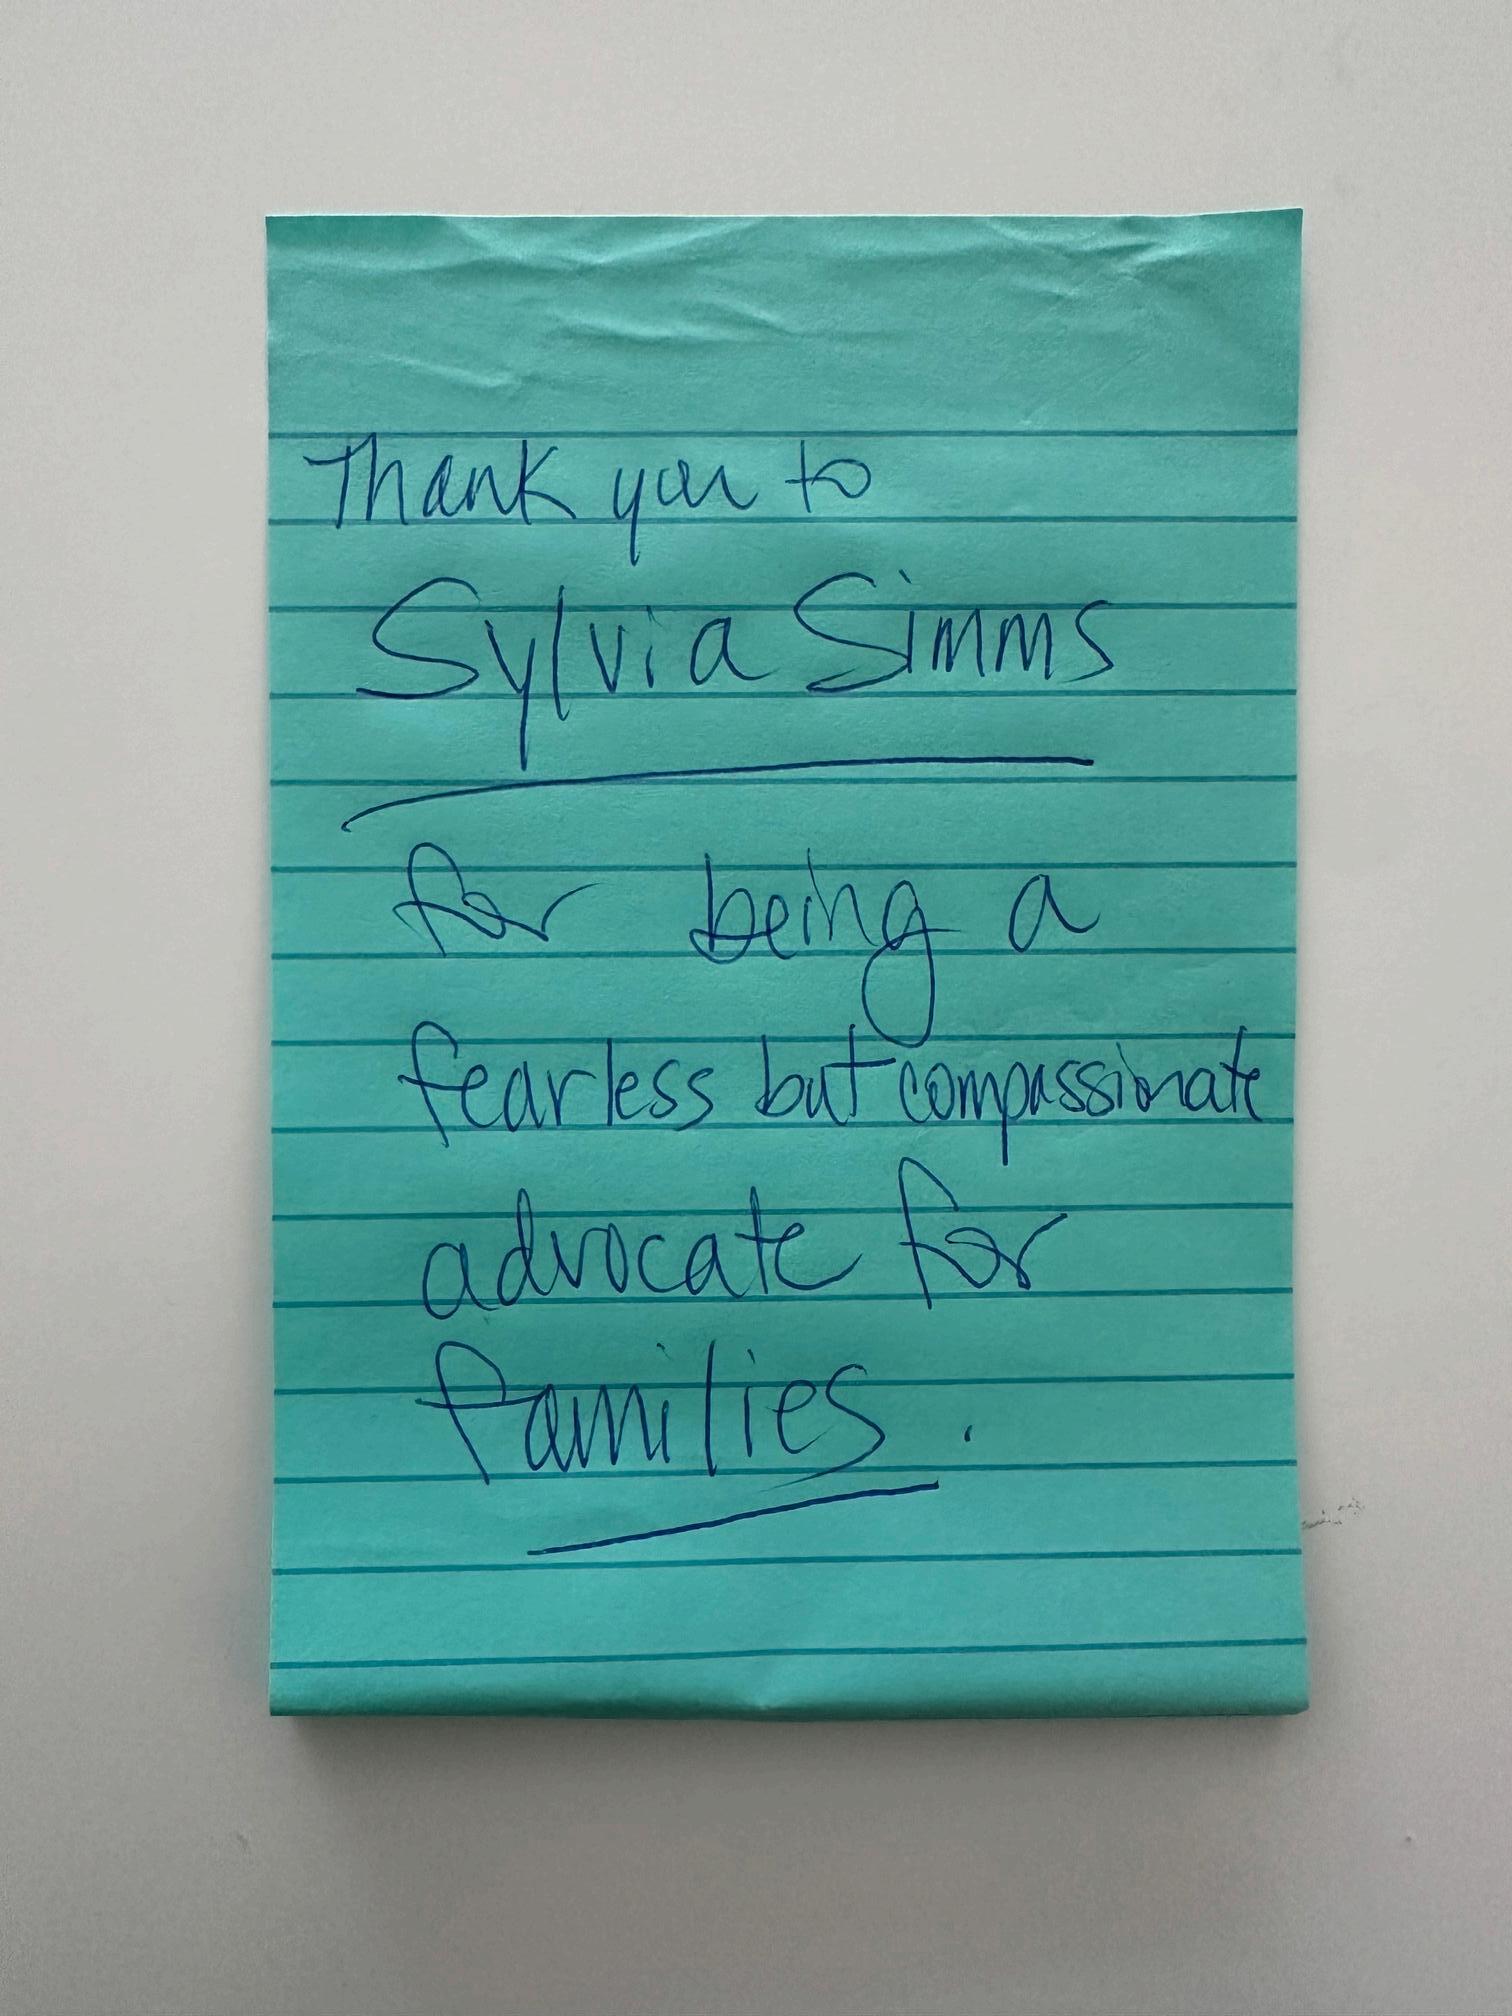 Thank you to
Sylvia Simms
for being a
fearless but compassionate
advocate for
families.